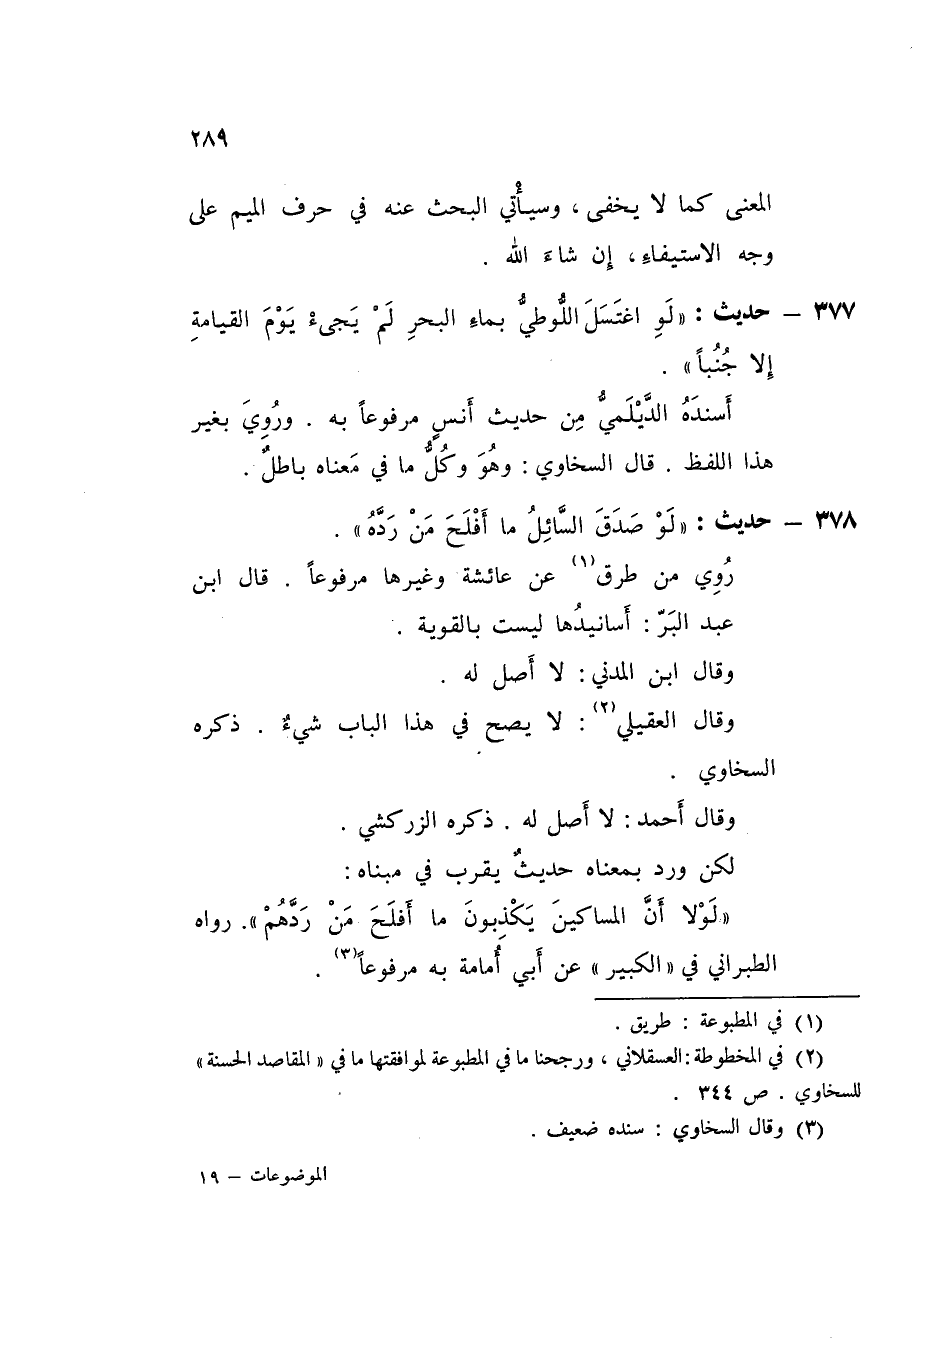 ٢٨٩
المعنى كما لا يخفى ، وسيأُتي البحث عنه في حرف الميم على
وجه الاستيفاءِ ، إِن شاءَ الله .
٣٧٧ – حديث : « لَوِ اغتَسَلَ اللُّوطيُّ بماءِ البحرِ لَمْ يَجىءْ يَوْمَ القيامةِ
إِلا جُنُباً » .
أَسندَهُ الدَّيْلَميُّ مِن حديث أَنسٍ مرفوعاً به . ورُوِيَ بغير
هذا اللفظ . قال السخاوي : وهُوَ وكُلُّ ما في مَعناه باطلٌ .
٣٧٨ – حديث : « لَوْ صَدَقَ السَّائِلُ ما أَفْلَحَ مَنْ رَدَّهُ » .
رُوِي من طرق(١) عن عائشة وغيرها مرفوعاً . قال ابن
عبد البَرّ : أَسانيدُها ليست بالقوية .
وقال ابن المدني : لا أَصل له .
وقال العقيلي(٢) : لا يصح في هذا الباب شيءٌ . ذكره
السخاوي .
وقال أَحمد : لا أَصل له . ذكره الزركشي .
لكن ورد بمعناه حديثٌ يقرب في مبناه :
« لَوْلا أَنَّ المساكينَ يَكْذِبونَ ما أَفلَحَ مَنْ رَدَّهُمْ ». رواه
الطبراني في « الكبير » عن أَبي أُمامة به مرفوعاً(٣) .
(١) في المطبوعة : طريق .
(٢) في المخطوطة : العسقلاني ، ورجحنا ما في المطبوعة لموافقتها ما في « المقاصد الحسنة »
للسخاوي . ص ٣٤٤ .
(٣) وقال السخاوي : سنده ضعيف .
الموضوعات – ١٩